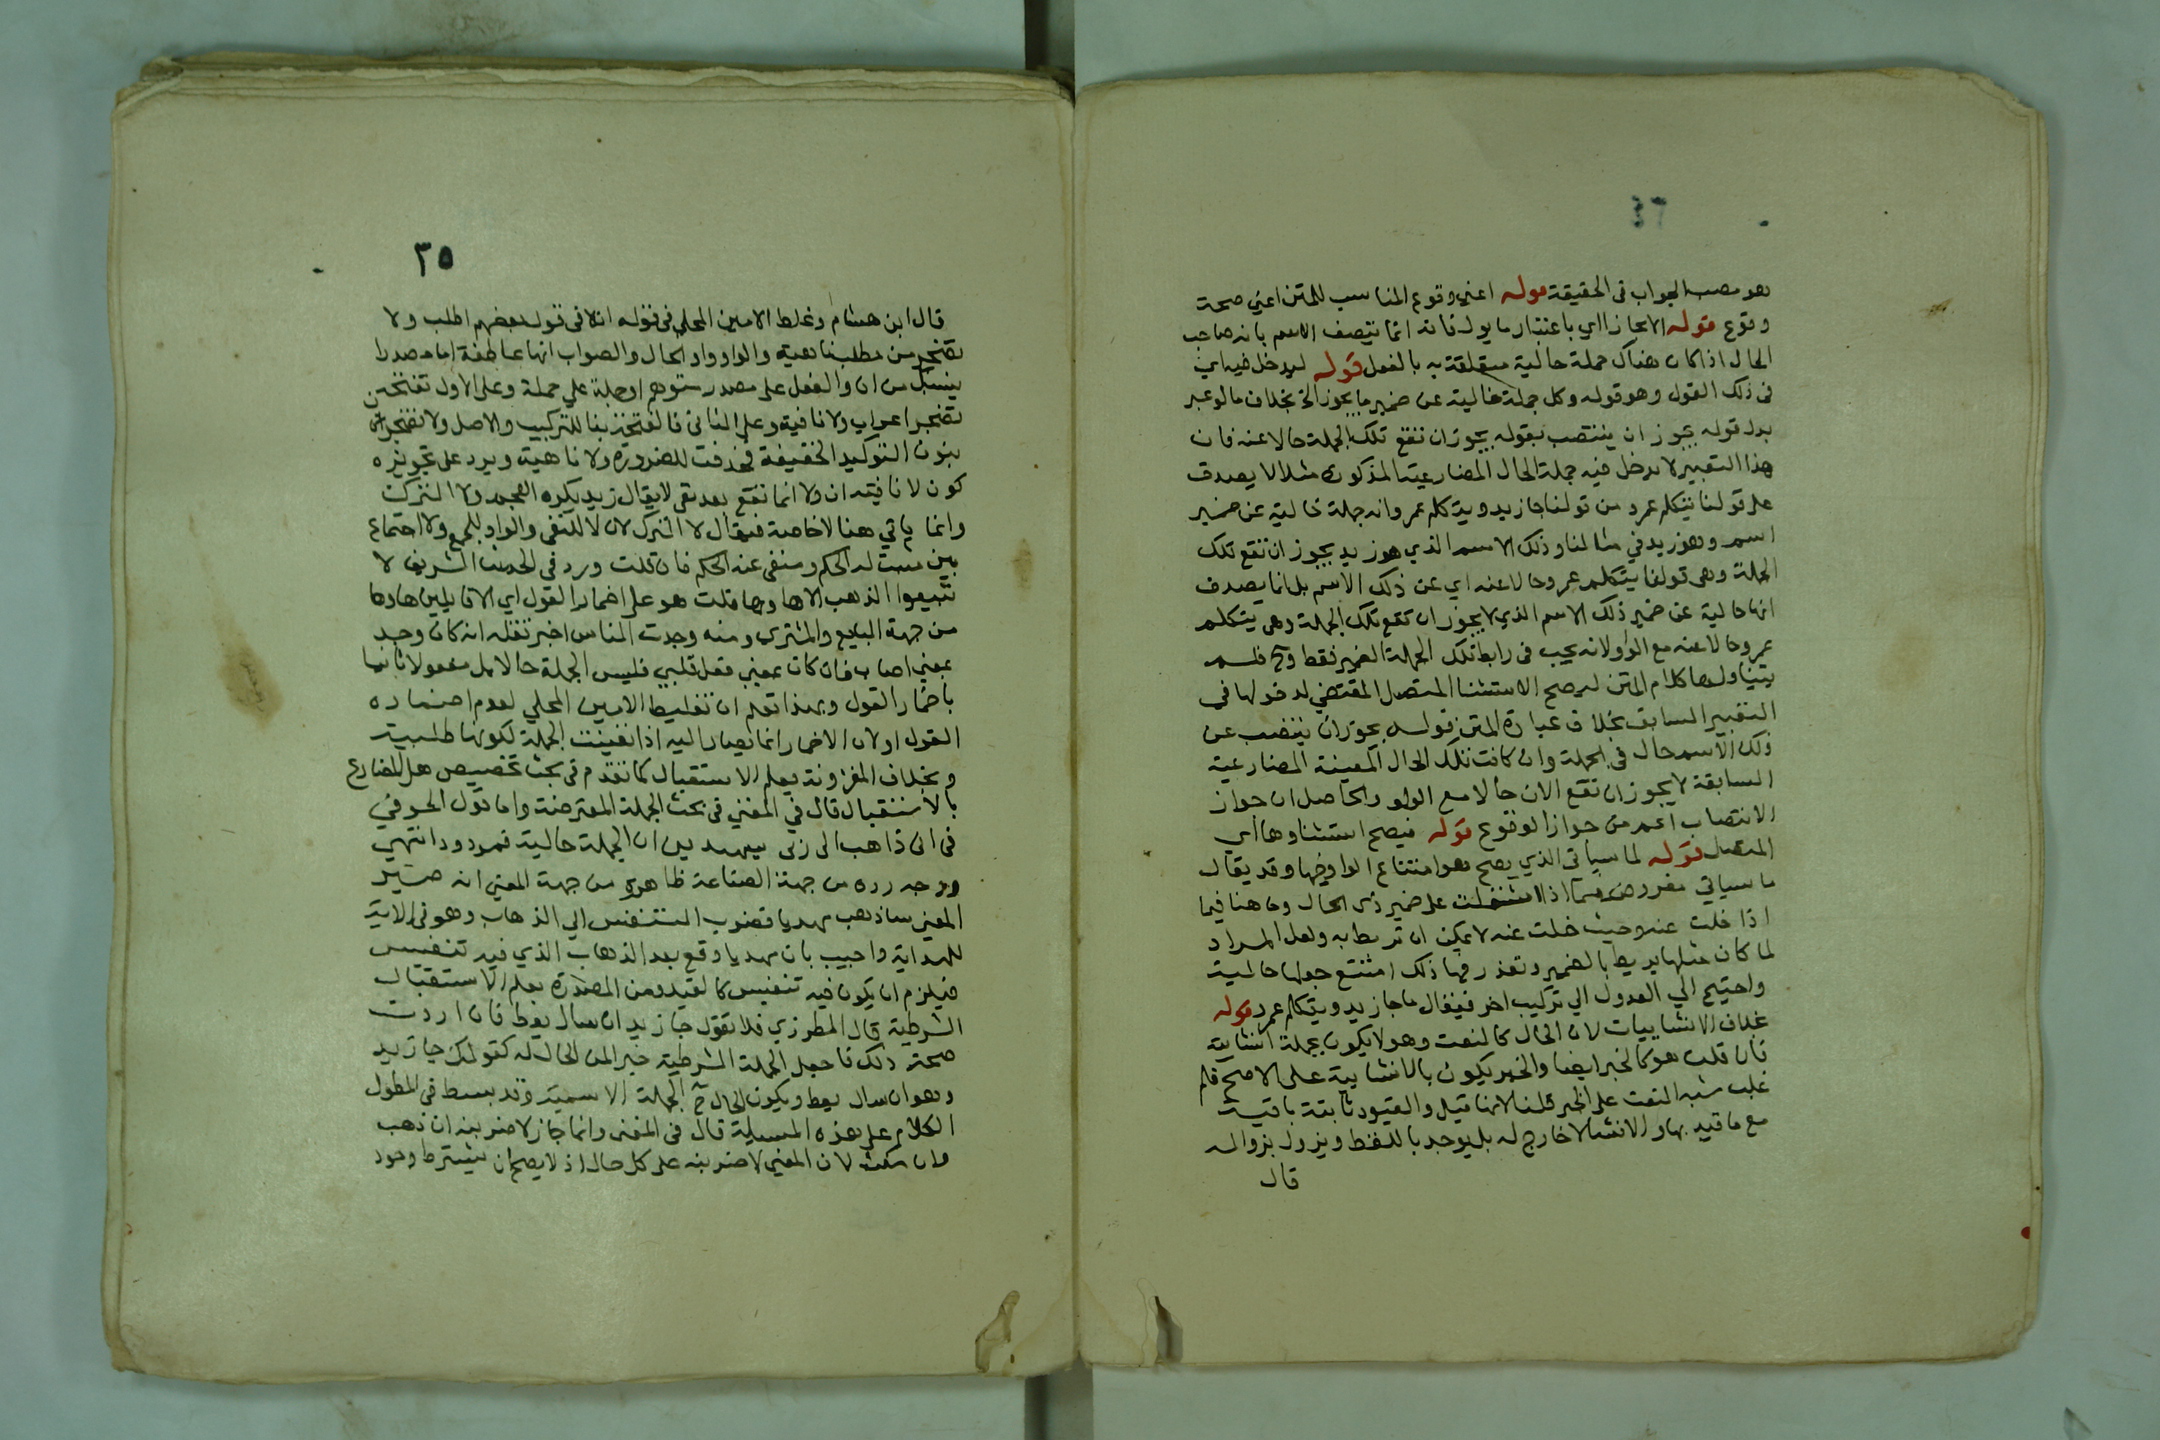 هو مصب الجواب في الحقيقة قوله اعني وقوع المناسب للمتن اعني صحة
وقوع قوله الا مجازا اي باعتبار ما يول فانه انما يتصف الاسم بانه صاحب
الحال اذا كان هناك جملة حالية متعلقة به بالفعل قوله ليدخل فيه اي
في ذلك القول وهو قوله وكل جملة خالية عن ضمير ما يجوز الخ بخلاف ما لو عبر
بدل قوله يجوز ان ينتصب بقوله يجوز ان تقع تلك الجملة حالا عنه فان
هذا التعبير لا يدخل فيه جملة الحال المضارعية المذكورة مثلا لا يصدق
على قولنا يتكلم عمرو من قولنا جا زيد ويتكلم عمرو انه جملة خالية عن ضمير
اسم وهو زيد في مثالنا وذلك الاسم الذي هو زيد يجوز ان تقع تلك
الجملة وهي قولنا يتكلم عمرو حالا عنه اي عن ذلك الاسم بل انما يصدق
انها خالية عن ضمير ذلك الاسم الذي لا يجوز ان تقع تلك الجملة وهي يتكلم
عمرو حالا عنه مع الواو لانه يجب في رابط تلك الجملة الضمير فقط وح فلم
يتناولها كلام المتن ليصح الاستثنا المتصل المقتضي لدخولها في
التعبير السابق بخلاف عبارة المتن قوله يجوز ان ينتصب عن
ذلك الاسم حال في الجملة وان كانت تلك الحال المعينة المضارعية
السابقة لا يجوز ان تقع الان حالا مع الواو والحاصل ان جواز
الانتصاب اعم من جواز الوقوع قوله فيصح استثناوها اي
المتصل قوله لما سياتي الذي يصح هو امتناع الواو فيها وقد يقال
ما سياتي مفروض فيما اذا اشتملت على ضمير ذي الحال وما هنا فيما
اذا خلت عنه وحيث خلت عنه لا يمكن ان تربط به ولعل المراد
لما كان مثلها يربط بالضمير وتعذر فيها ذلك امتنع جعلها حالية
واحتيج الي العدول الي تركيب اخر فيقال ما جا زيد ويتكلم عمرو قوله
بخلاف الانشاييات لان الحال كالنعت وهو لا يكون بجملة انشاية
فان قلت هو كالخبر ايضا والخبر يكون بالانشايية على الاصح فلم
غلب شبه النعت على الخبر قلنا لانها قيد والقيود ثابتة باقية
مع ما قيد بها والانشا لا خارج له بل يوجد باللفظ ويزول بزواله
قال
٣٥
قال ابن هشام وغلط الامين المحلي في قوله انلا في قول بعضهم اطلب ولا
تضجر من مطلب ناهية والواو واو الحال والصواب انها عاطفة اما مصدرا
ينسبك من ان والفعل على مصدر متوهم او جملة علي جملة وعلى الاول ففتحة
تضجر اعراب ولا نافية وعلى الثاني فالفتحة بنا للتركيب والاصل ولا تضجرن
بنون التوكيد الخفيفة فحذفت للضرورة ولا ناهية ويرد على تجويزه
كون لا نافية ان ولا انما تقع بعد نفي لا يقال زيد يكره العجم ولا الترك
وانما ياتي هنا لا خاصة فيقال لا الترك لان لا للنفي والواو للجمع ولا اجتماع
بين مثبت له الحكم ومنفي عنه الحكم فان قلت ورد في الحديث الشريف لا
تبيعوا الذهب الا ها وها قلت هو على اضمار القول اي الا قايلين ها وها
من جهة البايع والمشتري ومنه وجدت الناس اخبر تقله ان كان وجد
بمعني اصاب فان كان بمعني فعل قلبي فليس الجملة حالا بل مفعولا ثانيا
باضمار القول وبهذا تعلم ان تغليط الامين المحلي لعدم اضماره
القول اولان الاضمار انما يصار اليه اذا تعينت الجملة لكونها طلبية
وبخلاف المقرونة بعلم الاستقبال كما تقدم في بحث تخصيص هل للمضارع
بالاستقبال قال في المغني في بحث الجملة المعترضة واما قول الحوفي
في اني ذاهب الى ربي سيهدين ان الجملة حالية فمردود انتهي
ووجه رده من جهة الصناعة ظاهر ومن جهة المعني انه صير
المعني ساذهب مهديا فصرف التنفيس الي الذهاب وهو في الاية
للهداية واجيب بان مهديا وقع بعد الذهاب الذي فيه تنفيس
فيلزم ان يكون فيه تنفيس كالمقيد ومن المصدرة بعلم الاستقبال
الشرطية قال المطرزي فلا تقول جا زيد ان سال يعط فان اردت
صحة ذلك فاجعل الجملة الشرطية خبرا لمن الحال له كقولك جا زيد
وهو ان سال يعط ويكون الحال ح الجملة الاسمية وقد بسط في المطول
الكلام على هذه المسيلة قال في المغني وانما جاز لاضربنه ان ذهب
وان مكث لان المعني لاضربنه على كل حال اذ لا يصح ان يشترط وجود